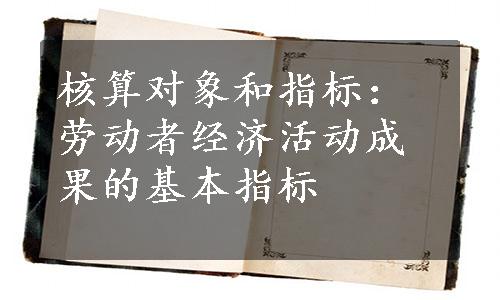 核算对象和指标：
劳动者经济活动成
果的基本指标